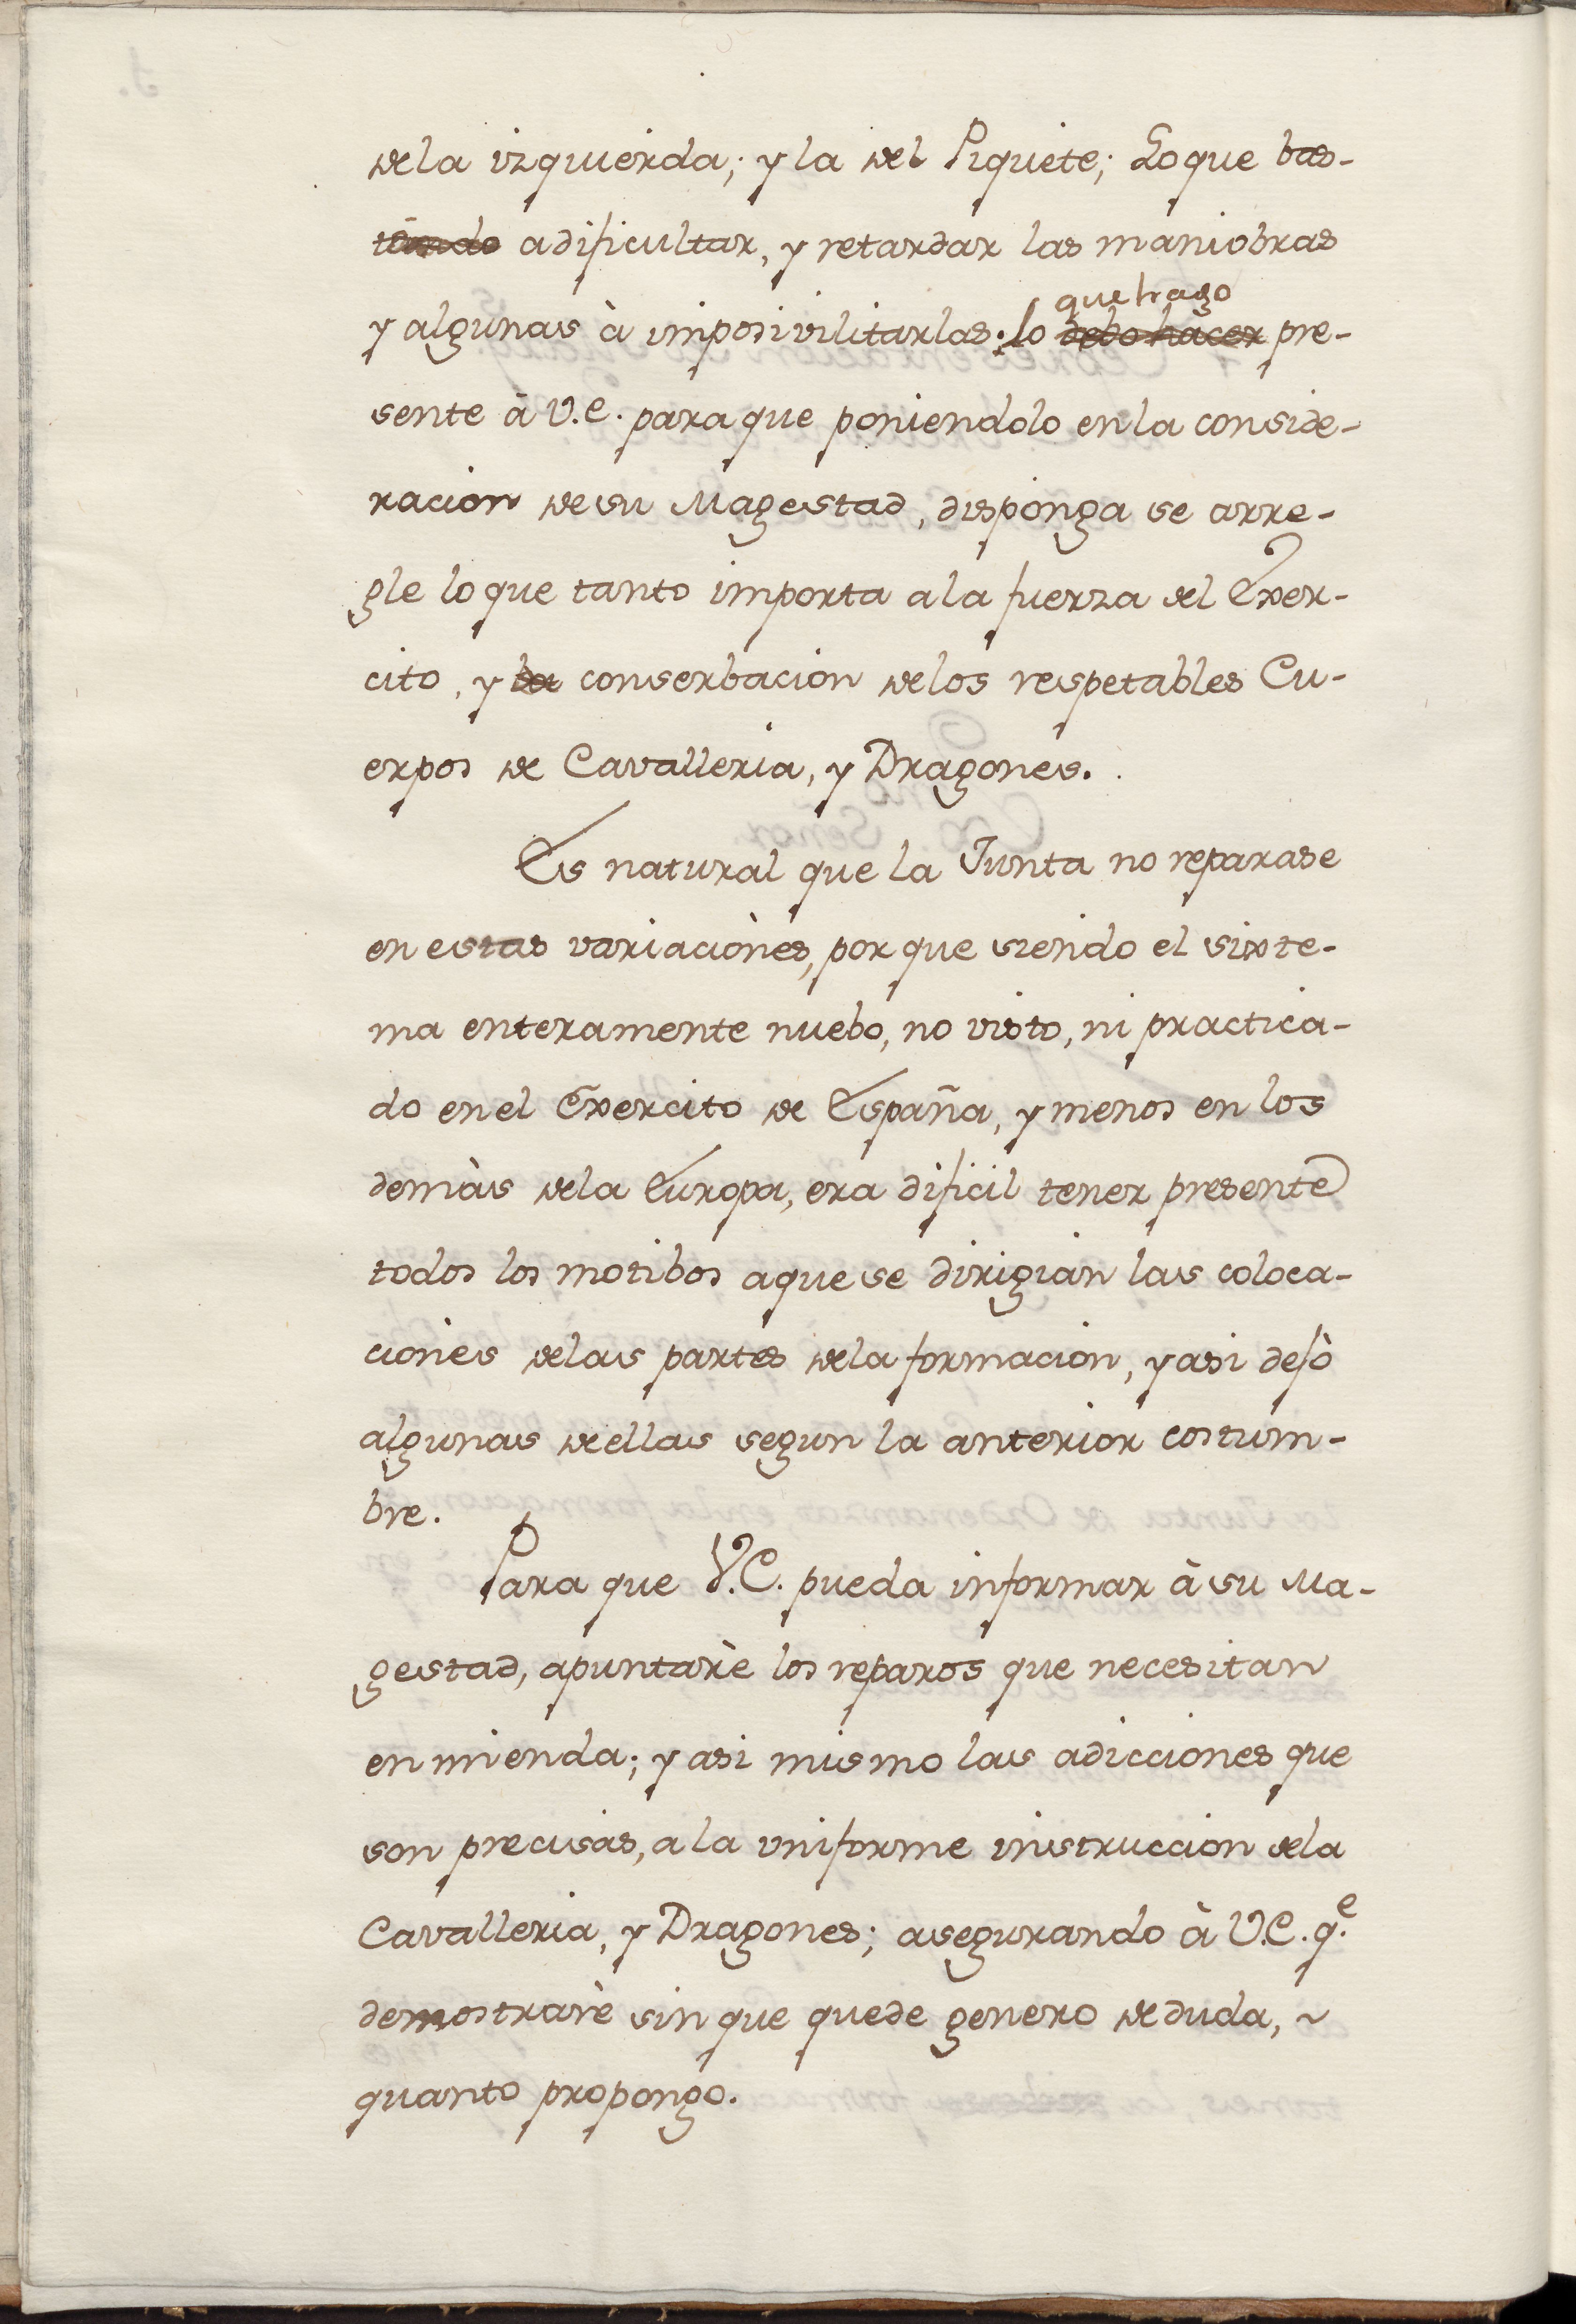 dela izquierda; y la del Piquete; Loque bas-
tando adificultar, y retardar las maniobras
y algunas à imposivilitarlas: lo debo hacer pre-
que hago
sente à V.E. para que poniendolo en la conside-
racion de su Magestad, disponga se arre-
gle lo que tanto importa a la fuerza del Exer-
cito, y la conserbacion delos respetables Cu-
erpos de Cavalleria, y Dragones.
Es natural que la Junta no reparase
en estas variaciònes, por que siendo el sixte-
ma enteramente nuebo, no visto, ni practica-
do en el Exercito de España, y menos en los
demàs dela Europa, era dificil tener presente
todos los motibos aque se dirigian las coloca-
ciones delas partes dela formacion, y asi dejò
algunas de ellas segun la anterior costum-
bre.
Para que V.E. pueda informar à su Ma-
gestad, apuntarè los reparos que necesitan
enmienda; y asi mismo las adicciones que
son precisas, a la uniforme instruccion dela
Cavalleria, y Dragones; asegurando à V.E. q.e
demostrarè sin que quede genero de duda, ~
quanto propongo.